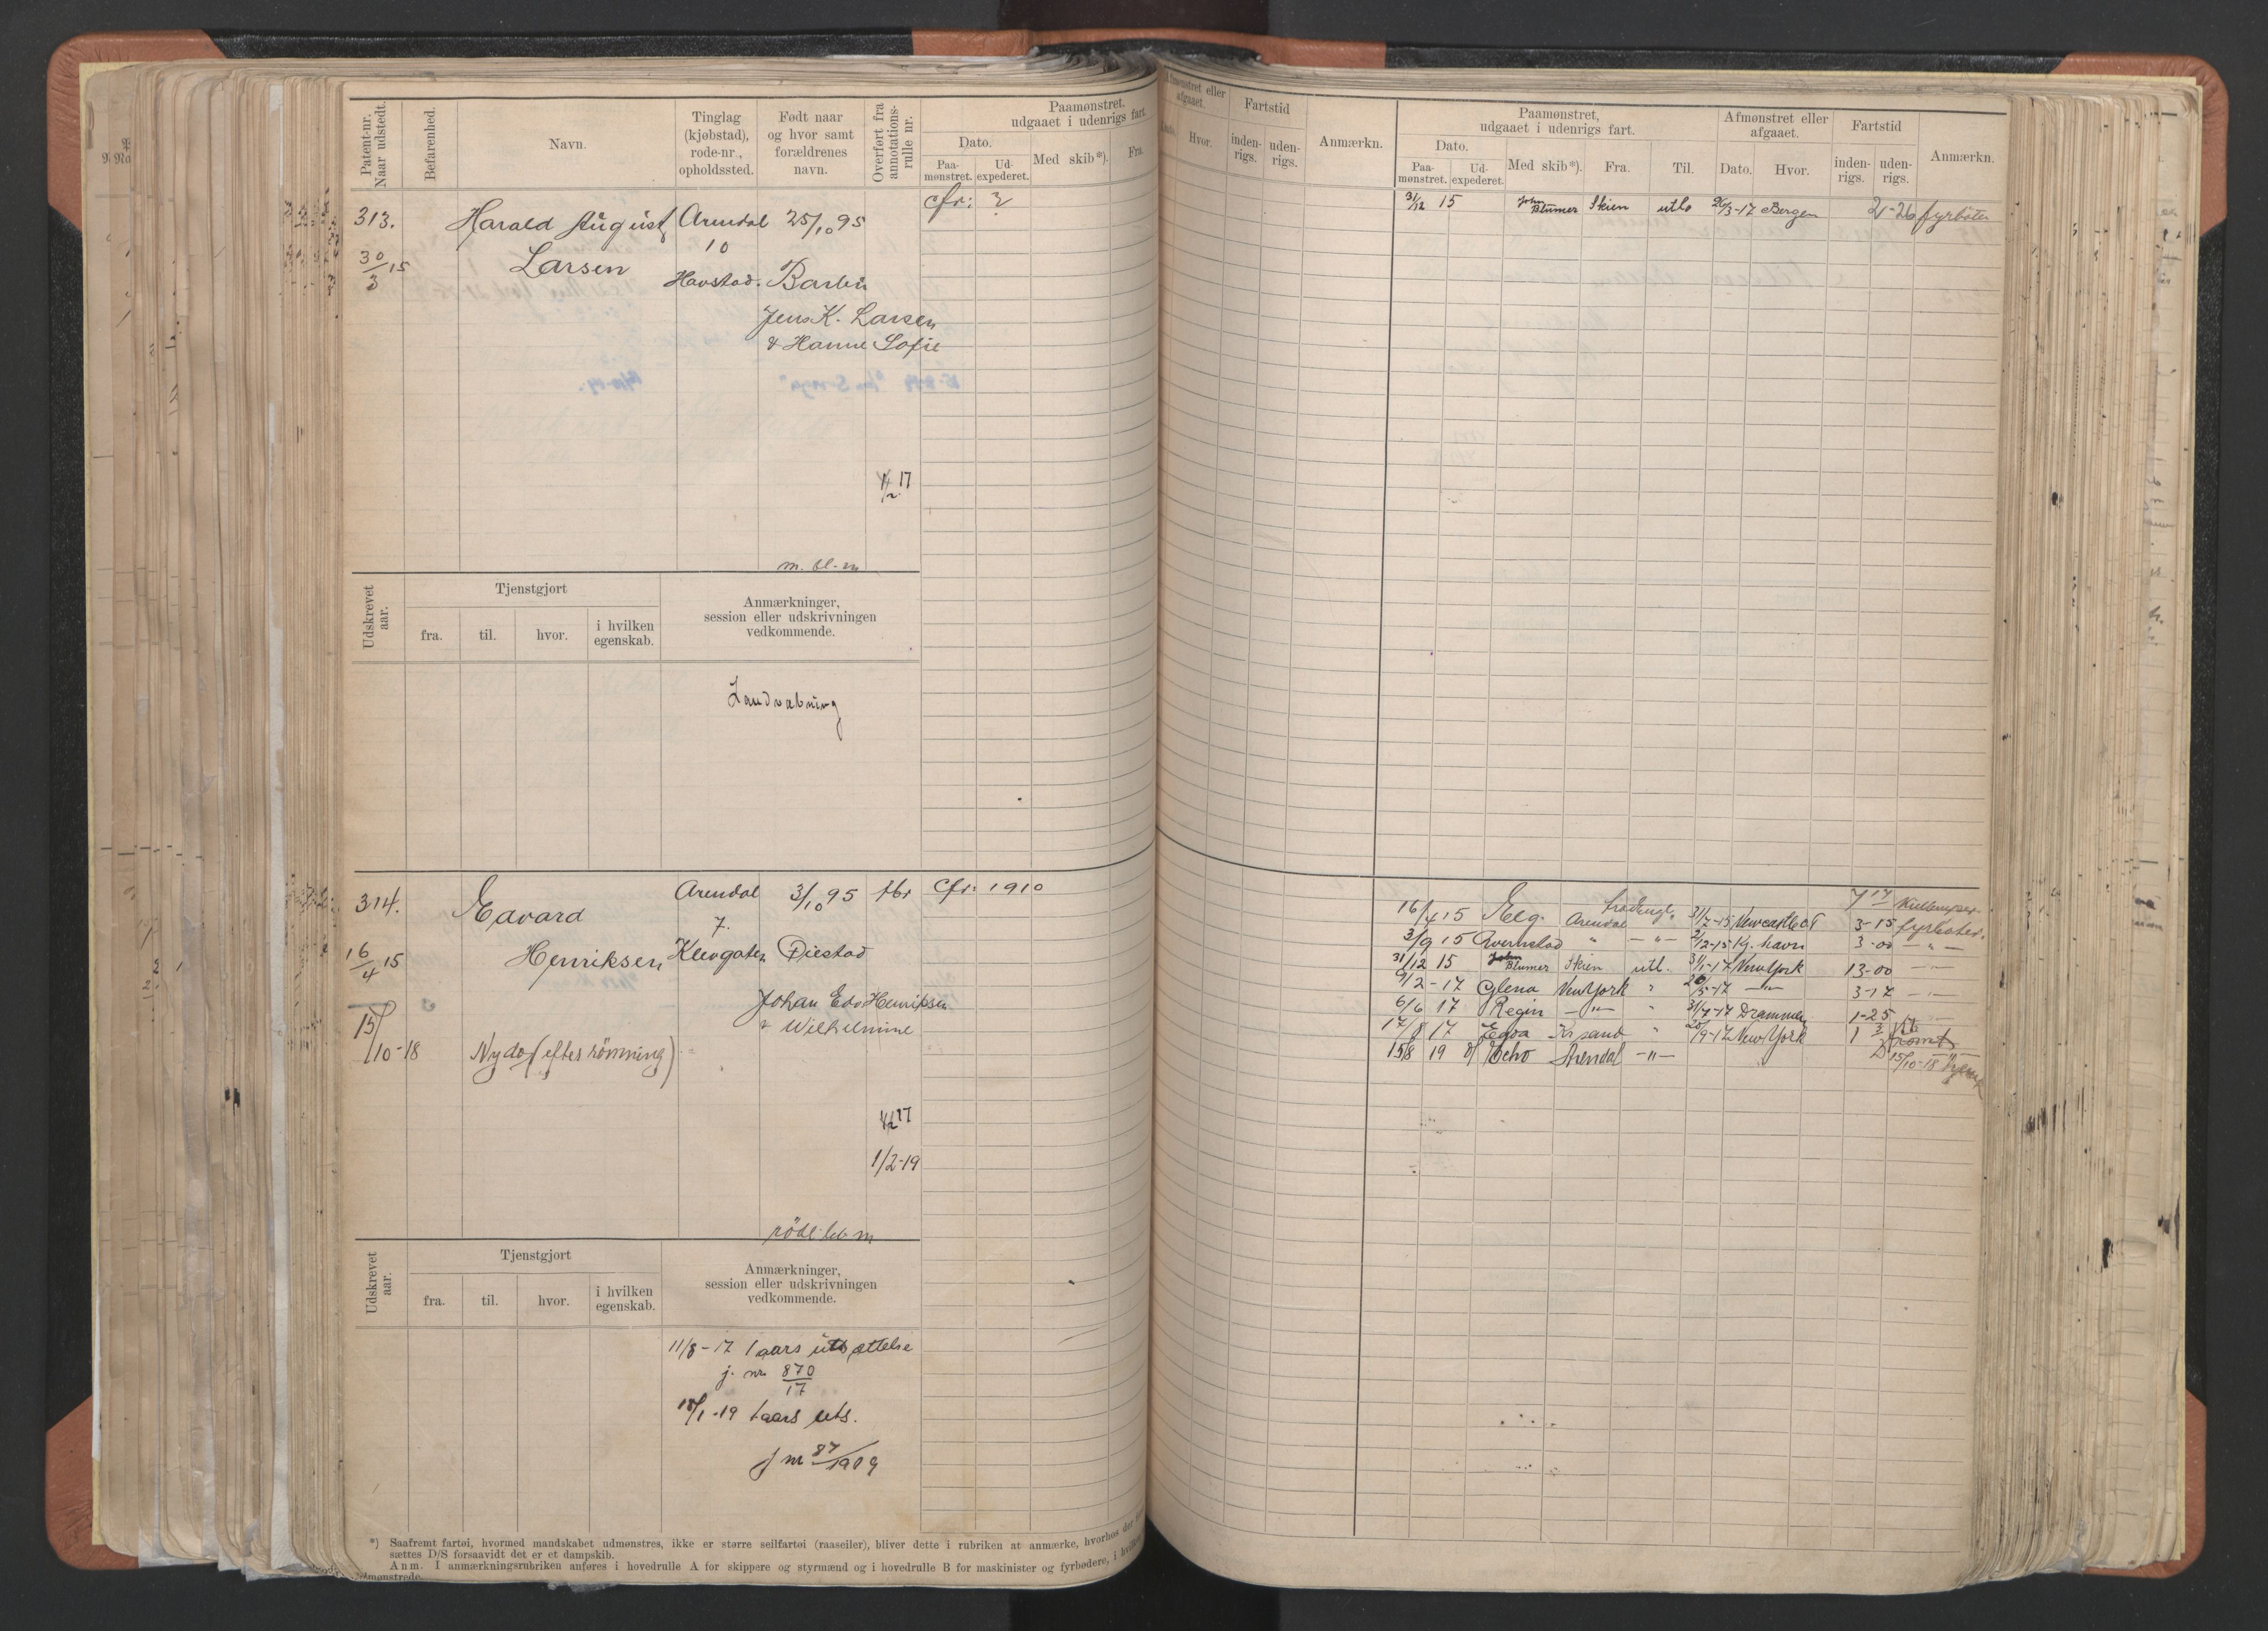 Patent-nr.
Naar udstedt.
Befarenhed.
Navn.
Tinglag
(kjøbstad),
rode-nr.,
opholdssted.
Født naar
og hvor samt
forældrenes
navn.
Overført fra
annotations-
rulle nr.
Paamønstret.
udgaaet i udenrigs fart.
Dato.
Paa-
mønstret.
Ud-
expederet.
Med skib*).
Fra.
313.
30/3 15
Harald August
Larsen
Arendal
10
Havstad.
25/10 95
Barbu
Jens K. Larsen
& Hanne Sofie
cfr: 2
1/2 17
m. bl. m
Udskrevet
aar.
Tjenstgjort
fra.
til.
hvor.
i hvilken
egenskab.
Anmærkninger,
session eller udskrivningen
vedkommende.
Landvæbning
314.
16/4 15
15/10-18
Edvard
Henriksen
Ny do (efter römning)
Arendal
7.
Klevgaten
3/10 95
Öiestad
Johan Edv Henriksen
& Wilhelmine
cfr: 1910
1/2 17
1/2-19
Udskrevet
aar.
Tjenstgjort
fra.
til.
hvor.
i hvilken
egenskab.
Anmærkninger,
session eller udskrivningen
vedkommende.
11/8-17 1 aars utsættelse
j. nr. 870/17
18/1-19 1 aars uts.
j nr 87/1909
*) Saafremt fartøi, hvormed mandskabet udmønstres, ikke er større seilfartøi (raaseiler), bliver dette i rubriken at anmærke, hvorhos der
sættes D/S forsaavidt det er et dampskib.
Anm. I anmærkningsrubriken anføres i hovedrulle A for skippere og styrmænd og i hovedrulle B for maskinister og fyrbødere, i
Afmønstret eller
afgaaet.
Dato.
Hvor.
Fartstid
inden-
rigs.
uden-
rigs.
Anmærkn.
Paamønstret,
udgaaet i udenrigs fart.
Dato.
Paa-
mønstret.
Ud-
expederet.
Med skib*).
Fra.
Til.
Afmønstret eller
afgaaet.
Dato.
Hvor.
Fartstid
inden-
rigs.
uden-
rigs.
Anmærkn.
31/12 15 John Blumer Skien utl. 26/3-17 Bergen 2-26 fyrböter
16/4 15 Elg. Arendal 31/7-15 Newcastle 3-15 fyrböter.
3/9 15 Kvernstad " -"- 2/12-15 Kj. havn 3-00 -"-
31/12 15 John Blumer Skien utl. 31/1-17 New York 13-00 -"-
9/2-17 Glena New York " 26/5-17 -"- 3-17 -"-
6/6 17 Regin -"- " 31/7-17 Drammen 1-25 -"-
17/8 17 Edda Kr sand " 20/9-17 New York 1 3 rømt
15/8 19 Echo Arendal -"- 15/10-18